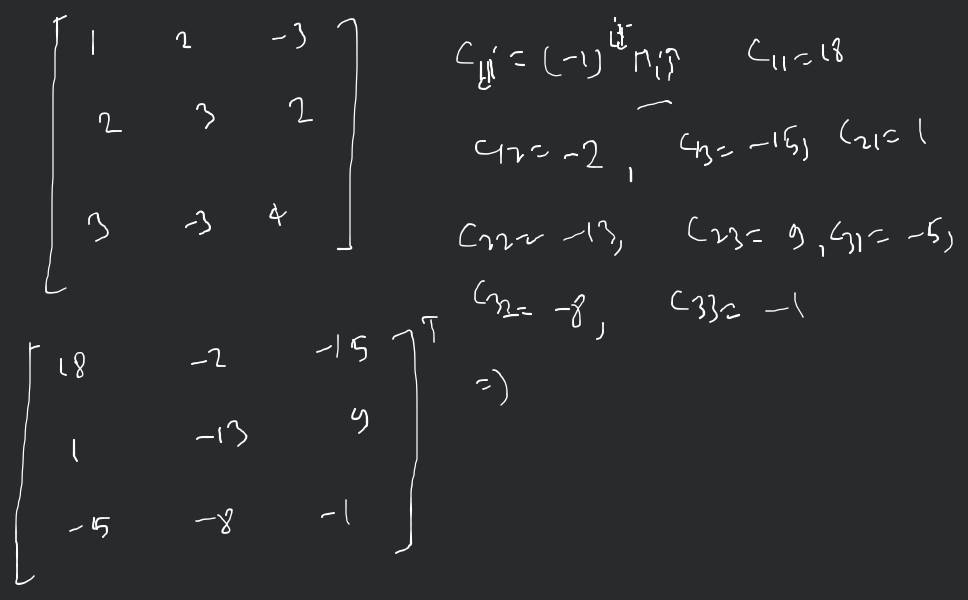 1 2 -3
2 3 2
3 -3 4
Cij = (-1)^ij Mij C11 = 18
C12 = -2, C13 = -15, C21 = 1
C22 = -13, C23 = 9, C31 = -5,
C32 = -8, C33 = -1
18 -2 -15 T
1 -13 9
-15 -8 -1
=>